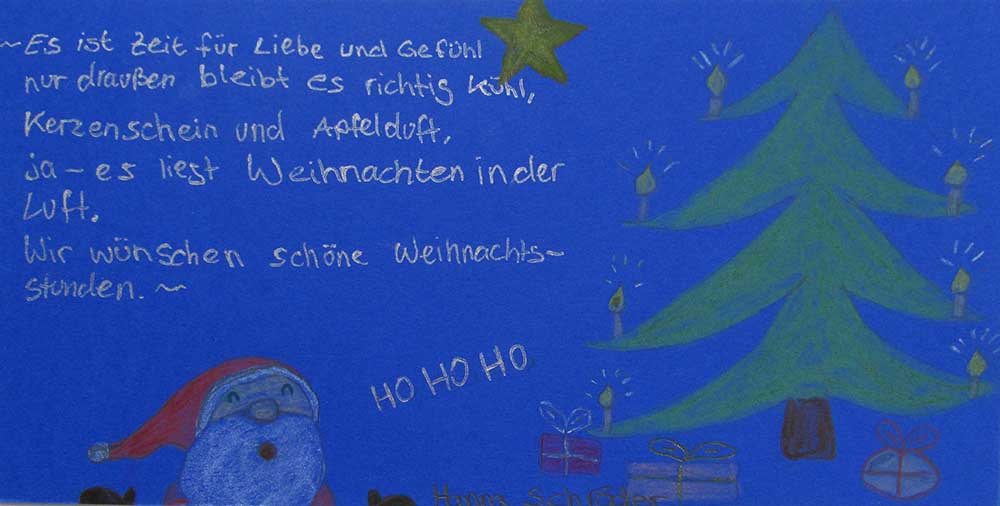 ~Es ist Zeit für Liebe und Gefühl
nur draußen bleibt es richtig kühl,
Kerzenschein und Apfelduft,
ja – es liegt Weihnachten in der
Luft.
Wir wünschen schöne Weihnachts-
stunden. ~
HO HO HO
Schröder